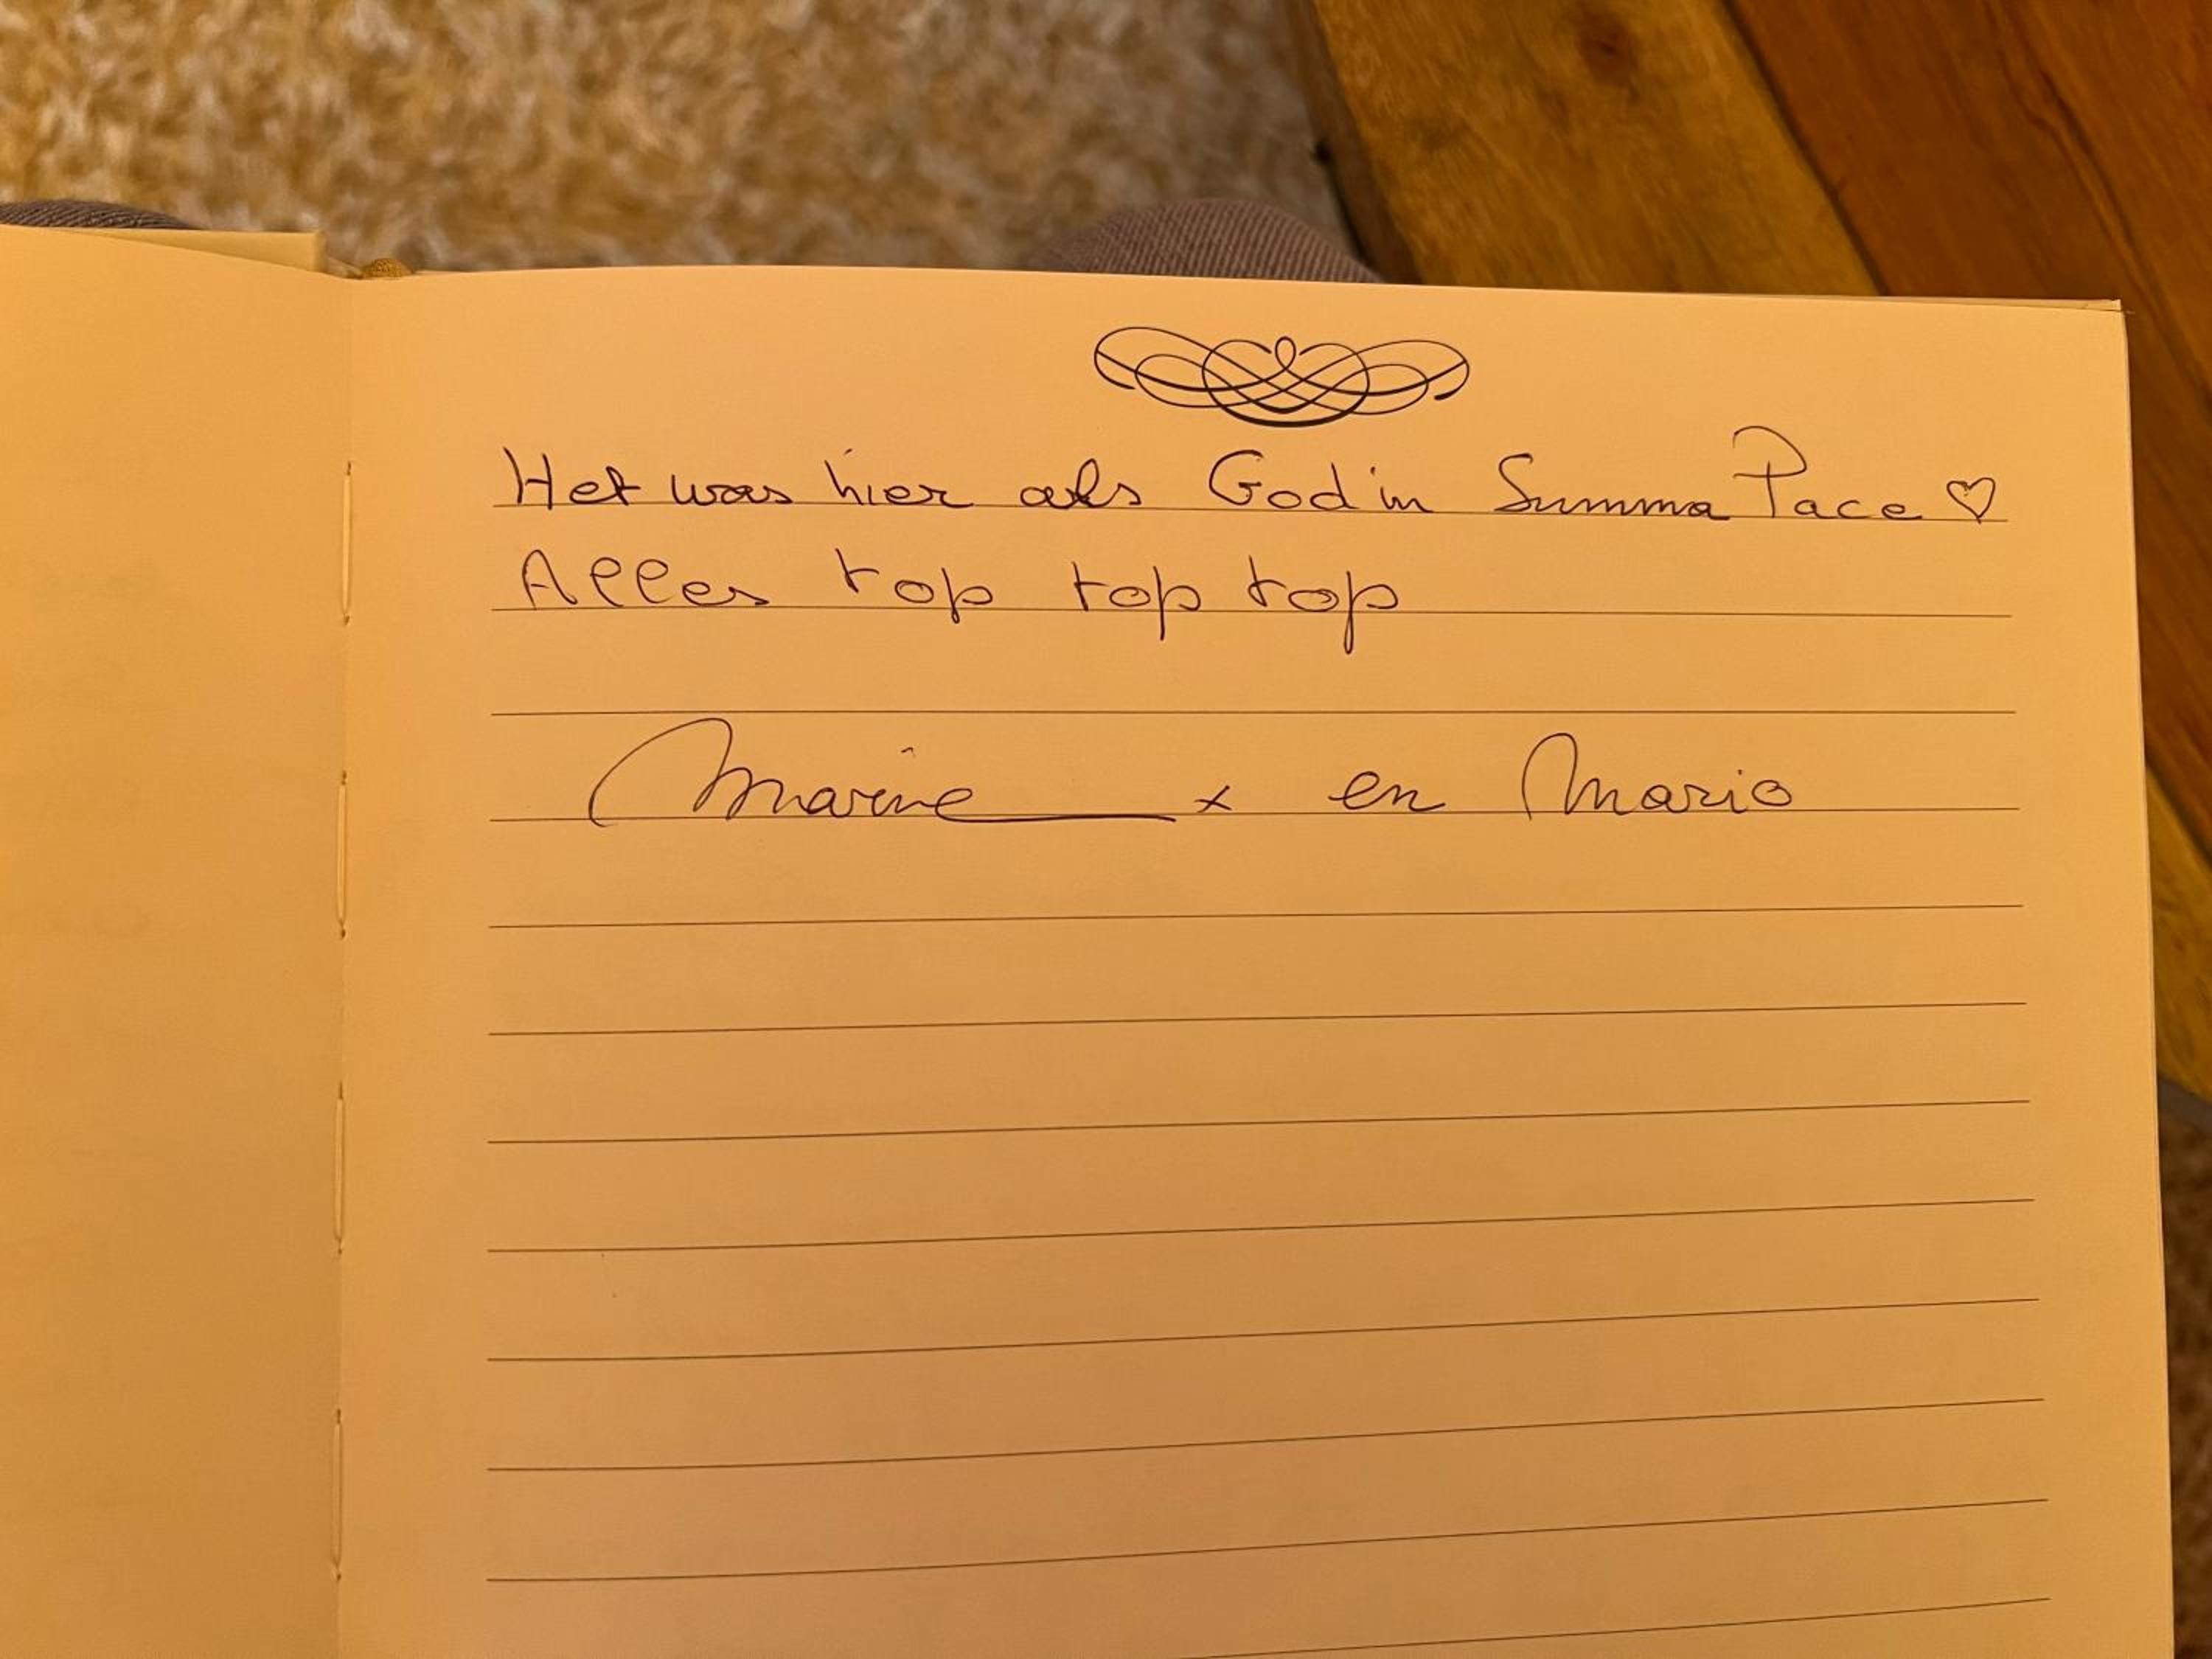 Het was hier als God in Summa Pace ♡
Alles top top top
Marine x en Mario